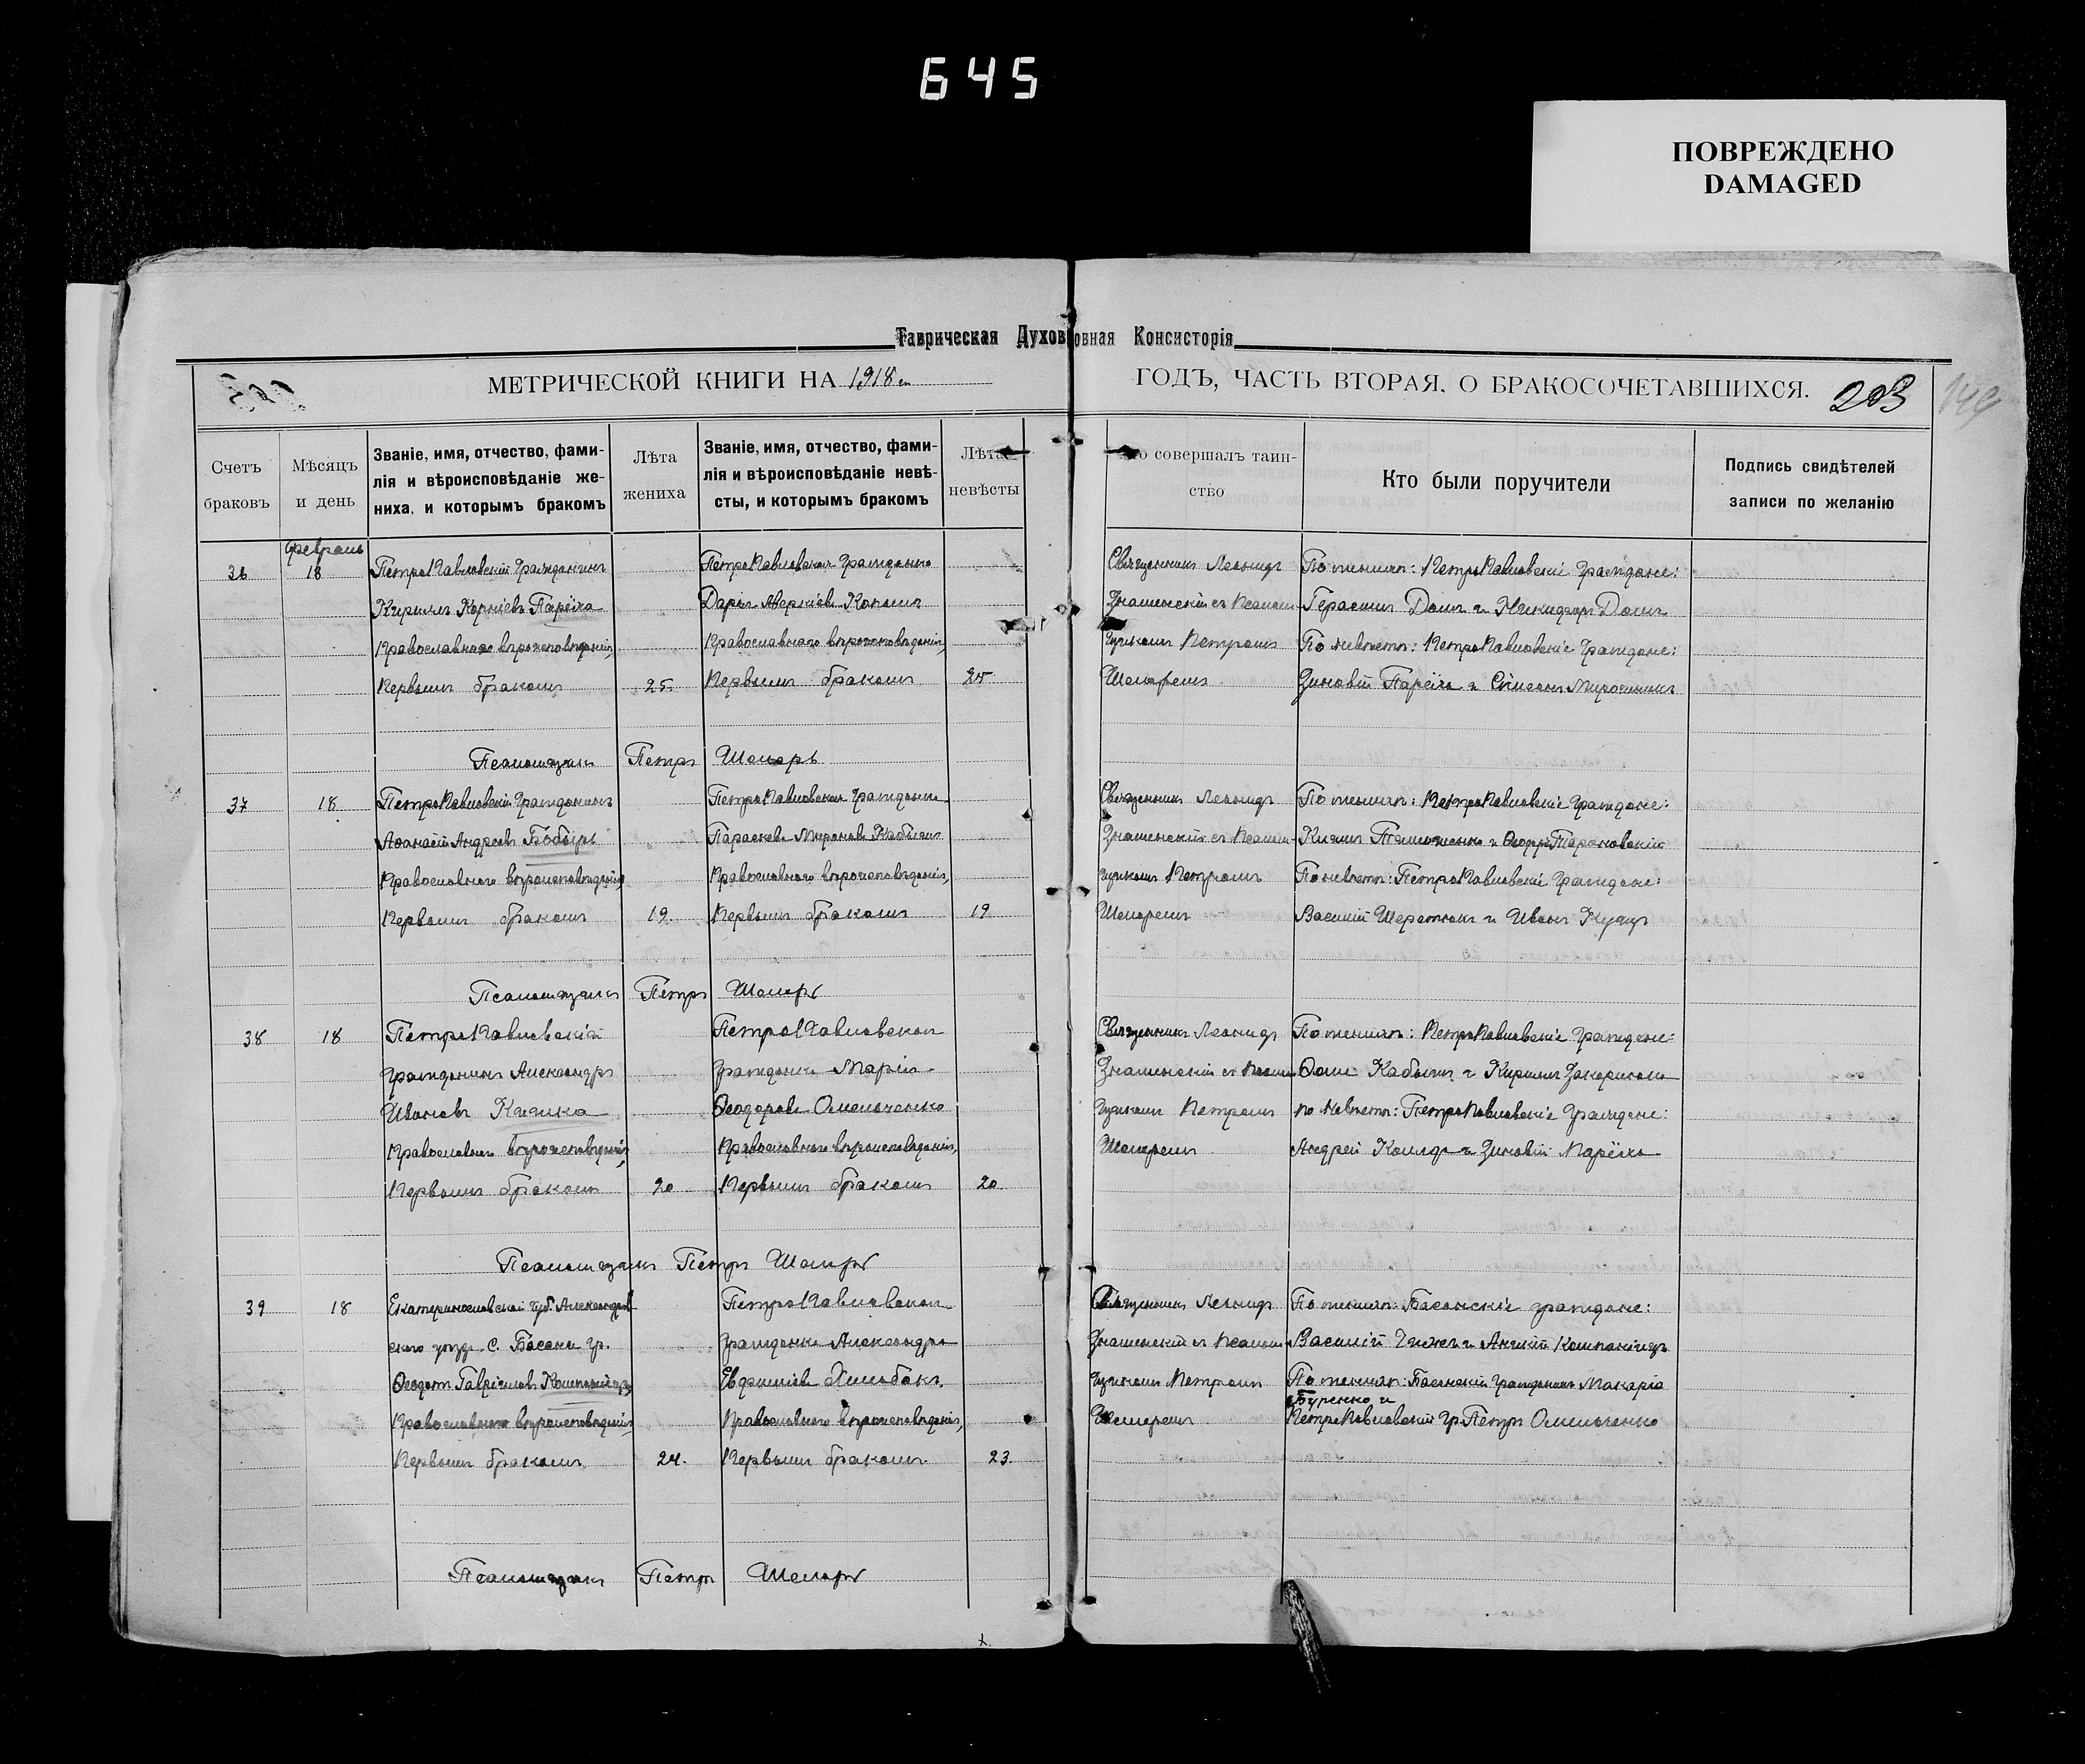 645
ПОВРЕЖДЕНО
DAMAGED
Таврическая Духовная Консисторія
МЕТРИЧЕСКОЙ КНИГИ НА 1918 ГОДЪ, ЧАСТЬ ВТОРАЯ, О БРАКОСОЧЕТАВШИХСЯ. 203
149
Счетъ браковъ
Мѣсяцъ и день
Званіе, имя, отчество, фами-
лія и вѣроисповѣданіе же-
ниха, и которымъ бракомъ
Лѣта жениха
Званіе, имя, отчество, фами-
лія и вѣроисповѣданіе невѣ-
сты, и которымъ бракомъ
Лѣта невѣсты
совершалъ таин-
ство
Кто были поручители
Подпись свидѣтелей
записи по желанію
Февраль
36
18
ПетроПавловскій Гражданинъ
Кириллъ Корніевъ Парѣха
Православнаго вѣроисповѣданія,
Первымъ бракомъ
25.
ПетроПавловская Гражданка
Дарія
Православнаго вѣроисповѣданія,
Первымъ бракомъ
25
Священникъ Леонидъ
Знаменскій съ Псалом-
щикомъ Петромъ
Шепаремъ
По женихѣ: ПетроПавловскіе Граждане:
Герасимъ Доля и Никифоръ Доля
По невѣстѣ: ПетроПавловскіе Граждане:
Зиновій Парѣха и Симеонъ Мирошникъ
Псаломщикъ Петръ Шепарь
37
18
ПетроПавловскій Гражданинъ
Аѳанасій Андреевъ Бобырь
Православнаго вѣроисповѣданія,
Первымъ бракомъ
19.
ПетроПавловская Гражданка
Параскева Миронова
Православнаго вѣроисповѣданія,
Первымъ бракомъ
19
Священникъ Леонидъ
Знаменскій съ Псалом-
щикомъ Петромъ
Шепаремъ
По женихѣ: ПетроПавловскіе Граждане:
и Ѳеодоръ Тарановскій
По невѣстѣ: ПетроПавловскіе Граждане:
Василій Шереметъ и Иванъ
Псаломщикъ Петръ Шепарь
38
18
ПетроПавловскій
Гражданинъ Александръ
Ивановъ
Православнаго вѣроисповѣданія,
Первымъ бракомъ
20
ПетроПавловская
Гражданка Марія
Ѳеодорова Омельченко
Православнаго вѣроисповѣданія,
Первымъ бракомъ
20.
Священникъ Леонидъ
Знаменскій съ Псалом
щикомъ Петромъ
Шепаремъ
По женихѣ: ПетроПавловскіе Граждане:
Ѳома и Кириллъ
По невѣстѣ: ПетроПавловскіе Граждане:
Андрей и Зиновій Парѣха
Псаломщикъ Петръ Шепарь
39
18
Екатеринославской губ. Александров
скаго уѣзда С. Басани гр.
Ѳеодотъ Гавріиловъ Компаніецъ,
Православнаго вѣроисповѣданія,
Первымъ бракомъ
24.
ПетроПавловская
Гражданка Александра
Евфиміева
Православнаго вѣроисповѣданія,
Первымъ бракомъ
23.
Священникъ Леонидъ
Знаменскій съ Псалом
щикомъ Петромъ
Шепаремъ
По женихѣ: Басанскіе граждане:
Василій и Компаніецъ
По женихѣ: Басанскій Гражданинъ Макарій
Буренко и
ПетроПавловскій гр. Петръ Омельченко
Псаломщикъ Петръ Шепарь